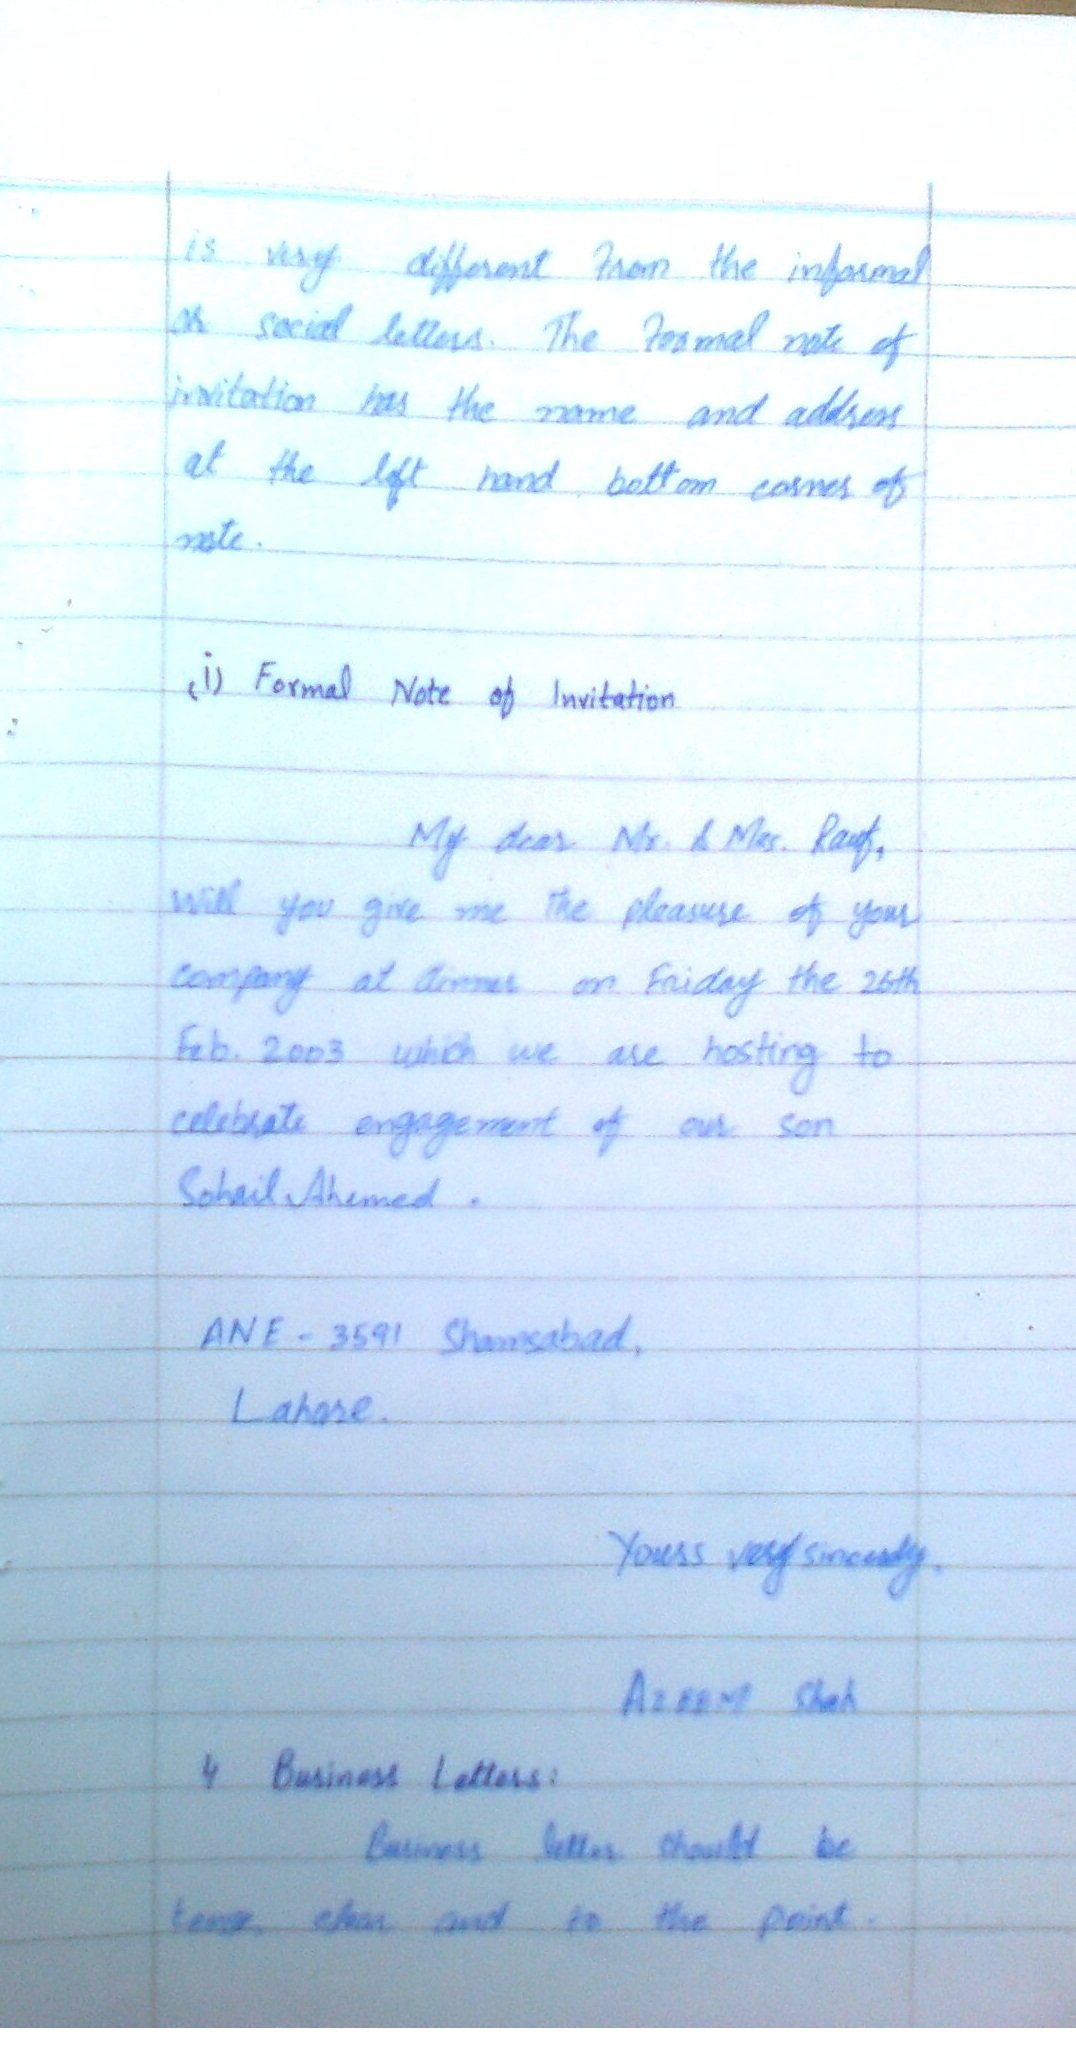 is very different from the informal
or social letters. The Formal note of
invitation has the name and address
at the left hand bottom corner of
note.
(i) Formal Note of Invitation
My dear Mr. & Mrs. Rauf,
Will you give me the pleasure of your
company at dinner on Friday the 26th
Feb. 2003 which we are hosting to
celebrate engagement of our son
Sohail Ahemed.
ANE - 3591 Shamsabad,
Lahore.
Yours very sincerely,
AZEEM Shah
4 Business Letters:
Business letter should be
terse, clear and to the point.